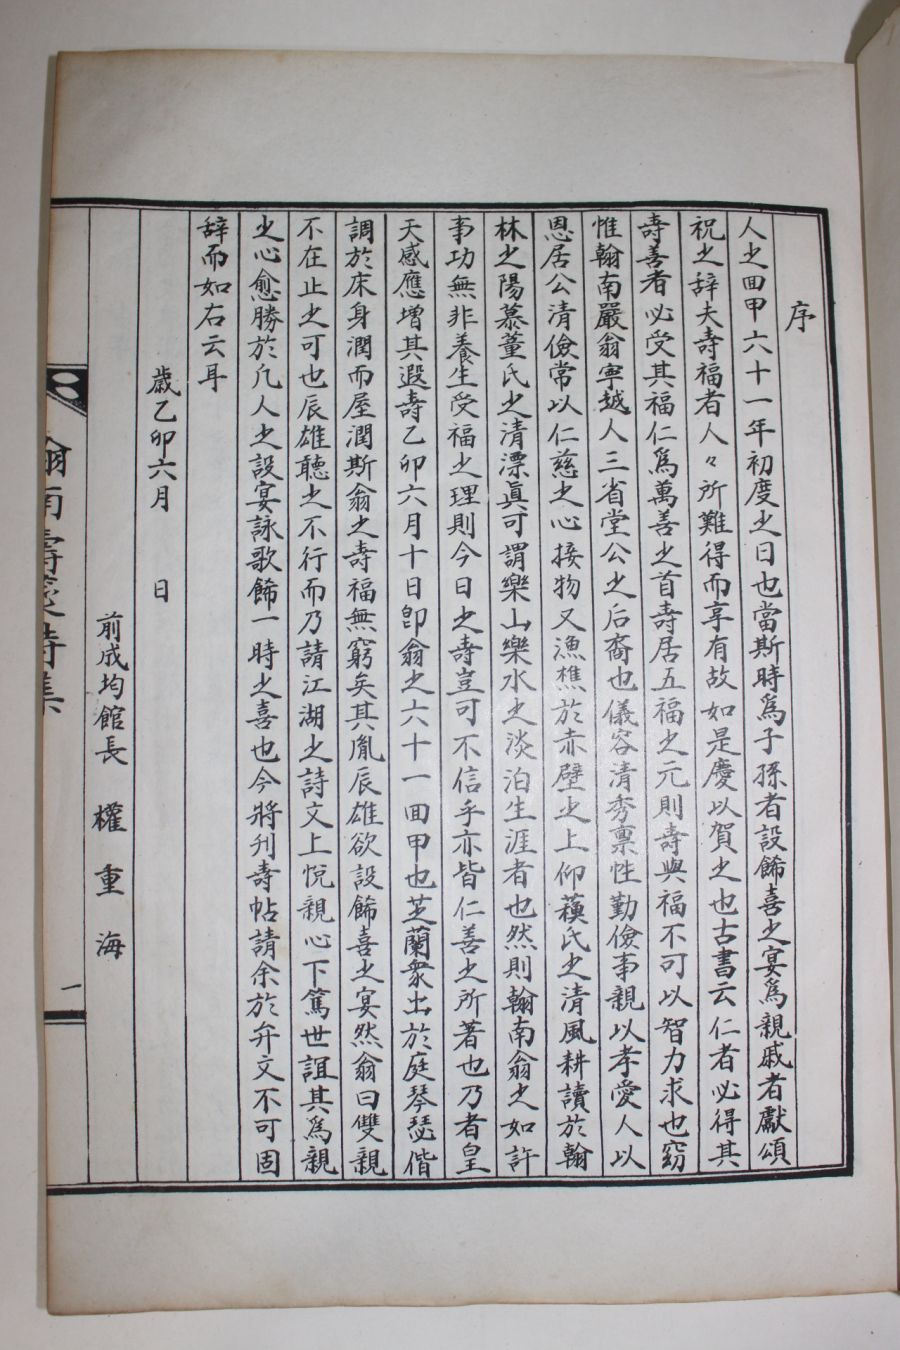 序
人之回甲六十一年初度之日也當斯時爲子孫者設餙喜之宴爲親戚者獻頌
祝之辞夫壽福者人々所難得而享有故如是慶以賀之也古書云仁者必得其
壽善者必受其福仁爲萬善之首壽居五福之元則壽與福不可以智力求也窃
惟翰南嚴翁寧越人三省堂公之后裔也儀容清秀禀性勤儉事親以孝愛人以
恩居公清儉常以仁慈之心接物又漁樵於赤壁之上仰蘓氏之清風耕讀於翰
林之陽慕董氏之清漂眞可謂樂山樂水之淡泊生涯者也然則翰南翁之如許
事功無非養生受福之理則今日之壽豈可不信乎亦皆仁善之所著也乃者皇
天感應增其遐壽乙卯六月十日卽翁之六十一回甲也芝蘭衆出於庭琴瑟偕
調於床身潤而屋潤斯翁之壽福無窮矣其胤辰雄欲設餙喜之宴然翁曰雙親
不在止之可也辰雄聽之不行而乃請江湖之詩文上悅親心下篤世誼其爲親
之心愈勝於凡人之設宴詠歌餙一時之喜也今將刋壽帖請余於弁文不可固
辞而如右云耳
歲乙卯六月　日
前成均館長　權重海
翰南壽筵詩集
一